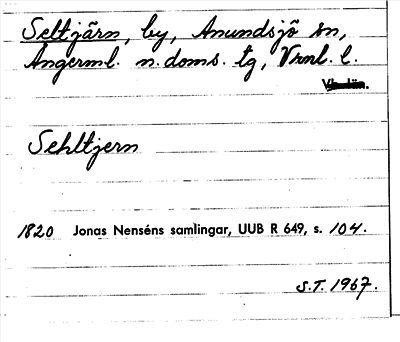 Seltjärn, by, Anundsjö sn,
Ångerml. n. doms. tg, Vrnl. l.
Sehltjern
1820 Jonas Nenséns samlingar, UUB R 649, s. 104.
S.T. 1967.